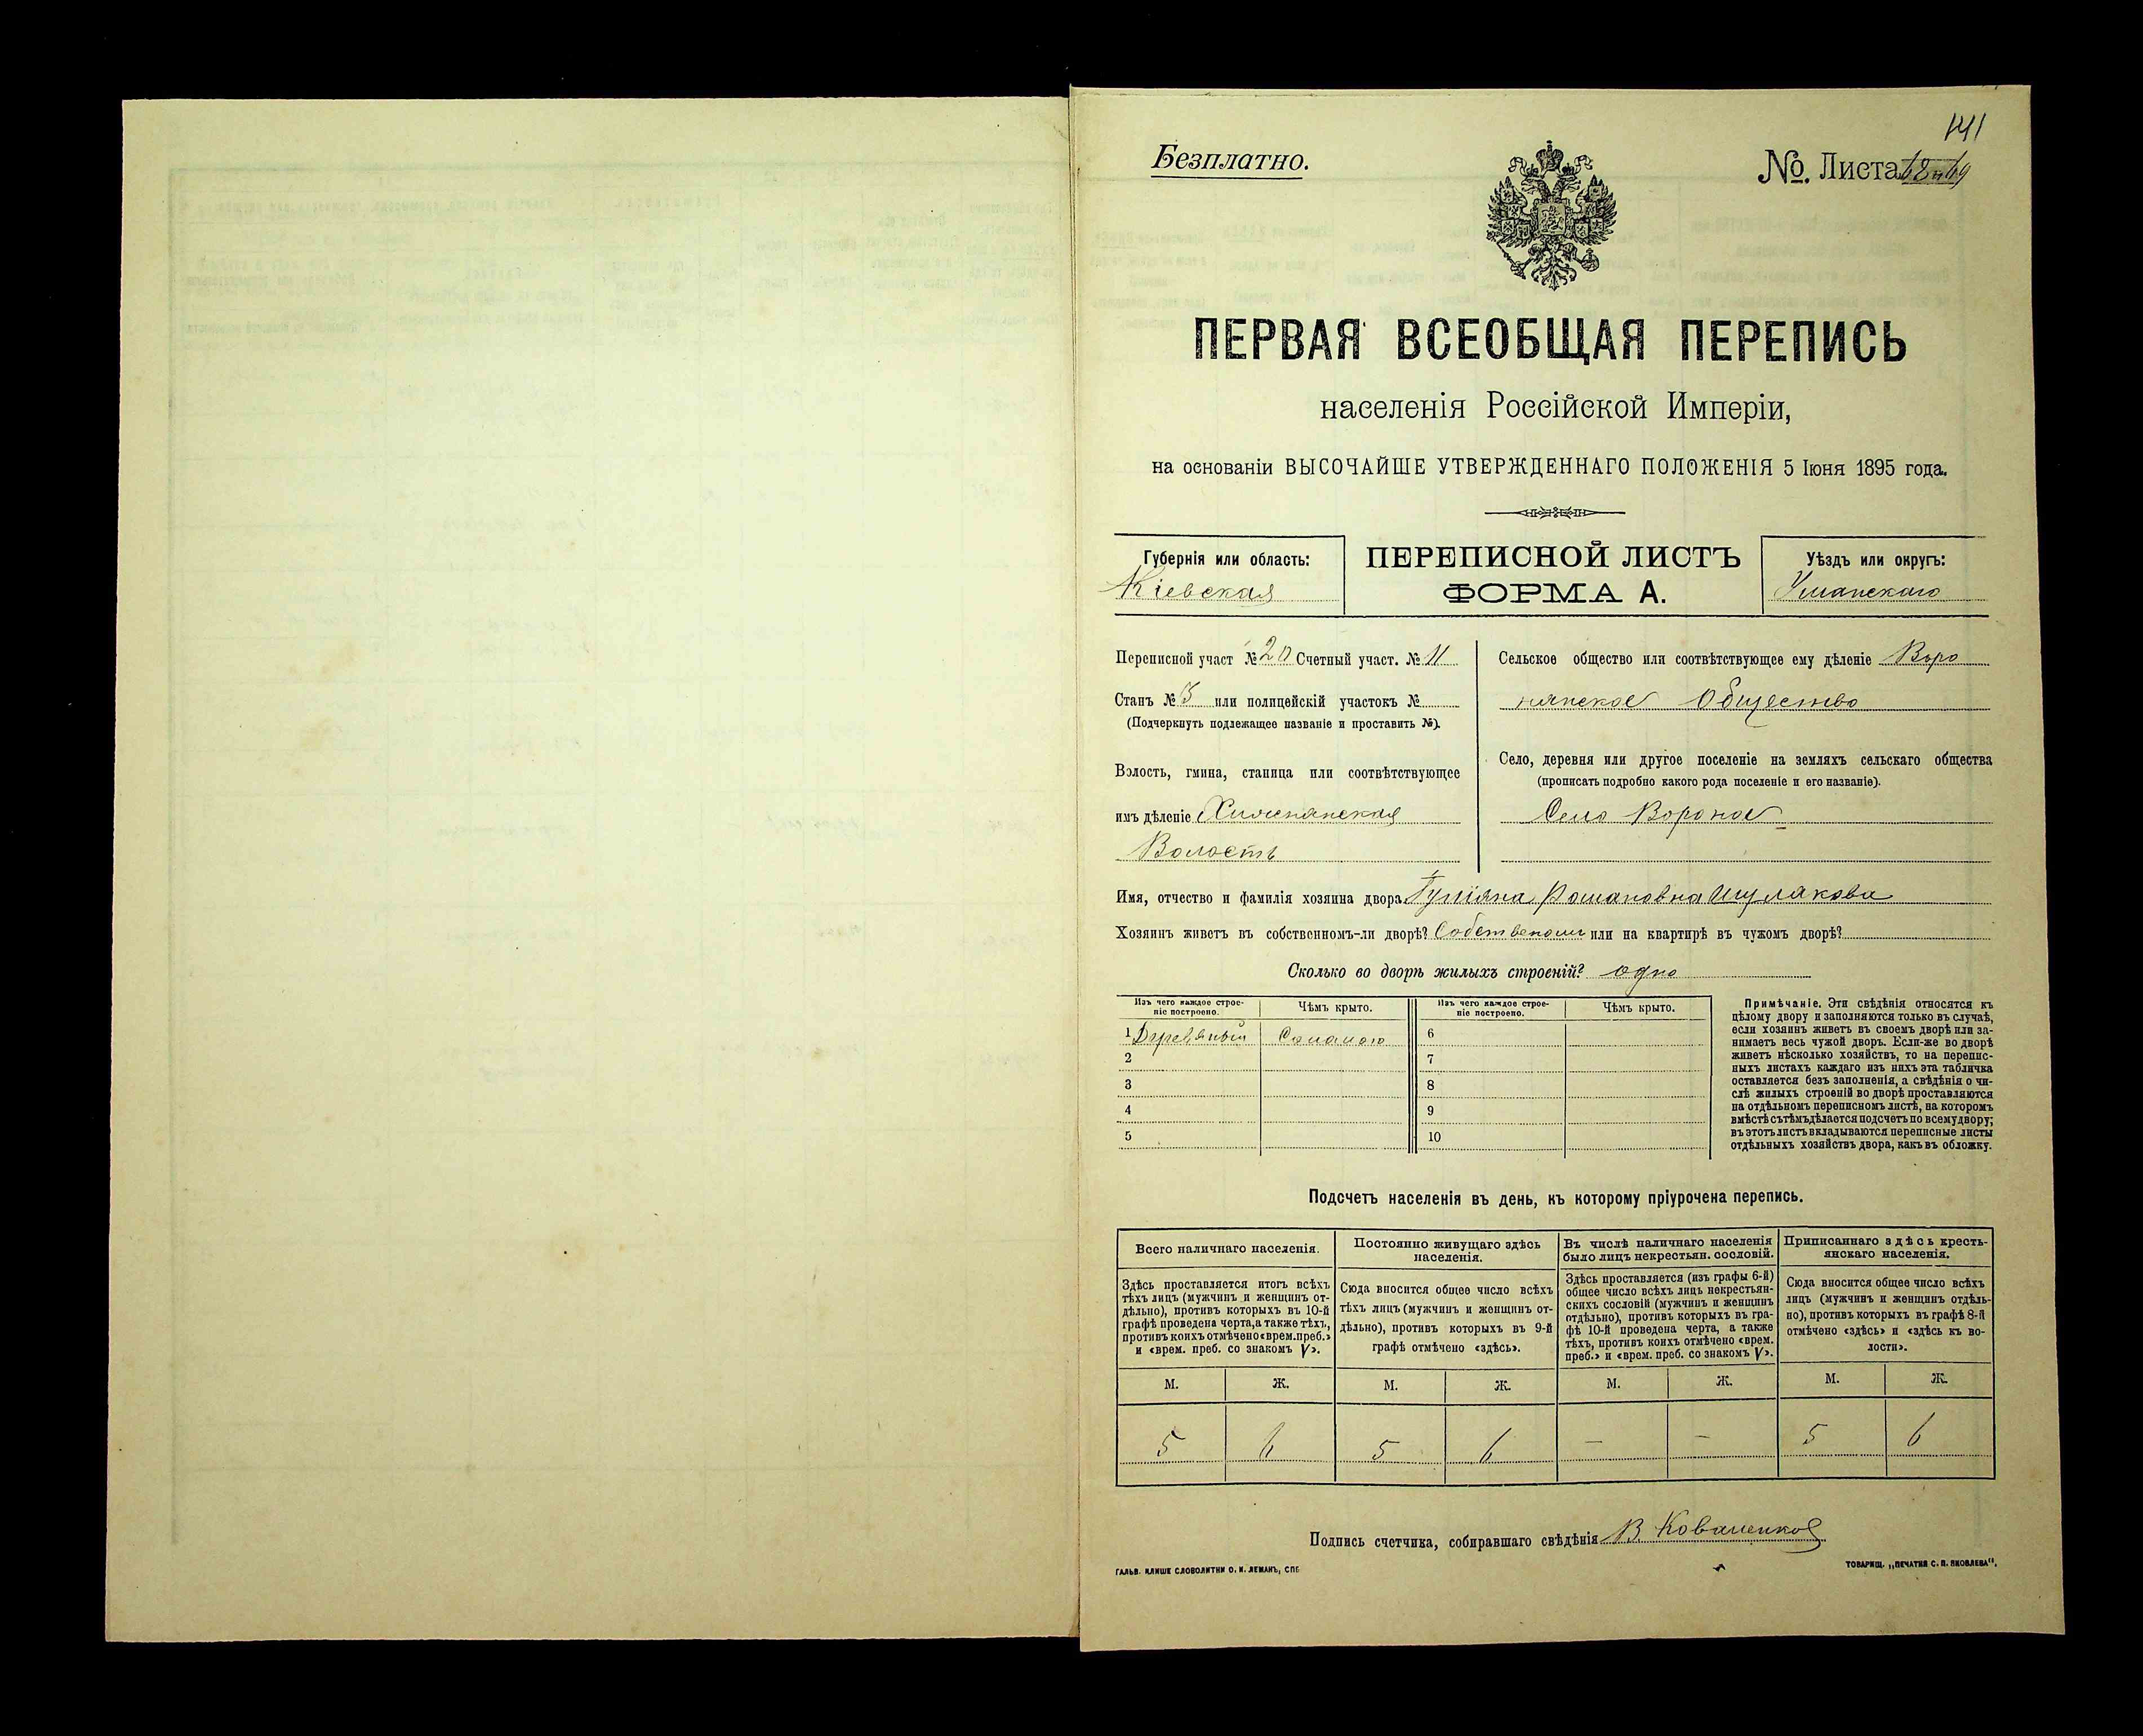 141
Безплатно.
№. Листа 68 и 69
ПЕРВАЯ ВСЕОБЩАЯ ПЕРЕПИСЬ
населенія Россійской Имперіи,
на основаніи ВЫСОЧАЙШЕ УТВЕРЖДЕННАГО ПОЛОЖЕНІЯ 5 Іюня 1895 года.
Губернія или область:
Кіевская
ПЕРЕПИСНОЙ ЛИСТЪ
ФОРМА А.
Уѣздъ или округъ:
Уманскаго
Переписной участ № 20 Счетный участ. № 11
Станъ № 3 или полицейскій участокъ №
(Подчеркнуть подлежащее названіе и проставить №).
Волость, гмина, станица или соотвѣтствующее
имъ дѣленіе
Волость
Сельское общество или соотвѣтствующее ему дѣленіе Воро
нянское Общество
Село, деревня или другое поселеніе на земляхъ сельскаго общества
(прописать подробно какого рода поселеніе и его названіе).
Село Вороное
Имя, отчество и фамилія хозяина двора. Романовна Шулякова
Хозяинъ живетъ въ собственномъ-ли дворѣ? Собственомъ или на квартирѣ въ чужомъ дворѣ?
Сколько во дворѣ жилыхъ строеній? одно
Изъ чего каждое строе-
ніе построено.
Чѣмъ крыто.
Изъ чего каждое строе-
ніе построено.
Чѣмъ крыто.
1 Соломою
2
3
4
5
6
7
8
9
10
Примѣчаніе. Эти свѣдѣнія относятся къ
цѣлому двору и заполняются только въ случаѣ,
если хозяинъ живетъ въ своемъ дворѣ или за-
нимаетъ весь чужой дворъ. Если-же во дворѣ
живетъ нѣсколько хозяйствъ, то на перепис-
ныхъ листахъ каждаго изъ нихъ эта табличка
оставляется безъ заполненія, а свѣдѣнія о чи-
слѣ жилыхъ строеній во дворѣ проставляются
на отдѣльномъ переписномъ листѣ, на которомъ
вмѣстѣ съ тѣмъ дѣлается подсчетъ по всему двору;
въ этотъ листъ вкладываются переписные листы
отдѣльныхъ хозяйствъ двора, какъ въ обложку.
Подсчетъ населенія въ день, къ которому пріурочена перепись.
Всего наличнаго населенія.
Здѣсь проставляется итогъ всѣхъ
тѣхъ лицъ (мужчинъ и женщинъ от-
дѣльно), противъ которыхъ въ 10-й
графѣ проведена черта, а также тѣхъ,
противъ коихъ отмѣчено «врем. преб.»
и «врем. преб. со знакомъ V».
Постоянно живущаго здѣсь
населенія.
Сюда вносится общее число всѣхъ
тѣхъ лицъ (мужчинъ и женщинъ от-
дѣльно), противъ которыхъ въ 9-й
графѣ отмѣчено «здѣсь».
Въ числѣ наличнаго населенія
было лицъ некрестьян. сословій.
Здѣсь проставляется (изъ графы 6-й)
общее число всѣхъ лицъ некрестьян-
скихъ сословій (мужчинъ и женщинъ
отдѣльно), противъ которыхъ въ гра-
фѣ 10-й проведена черта, а также
тѣхъ, противъ коихъ отмѣчено «врем.
преб.» и «врем. преб. со знакомъ V».
Приписаннаго здѣсь кресть-
янскаго населенія.
Сюда вносится общее число всѣхъ
лицъ (мужчинъ и женщинъ отдѣль-
но), противъ которыхъ въ графѣ 8-й
отмѣчено «здѣсь» и «здѣсь къ во-
лости».
М. Ж. М. Ж. М. Ж. М. Ж.
5 6 5 6 — — 5 6
Подпись счетчика, собиравшаго свѣдѣнія В. Коваленко
ГАЛЬВ. КЛИШЕ СЛОВОЛИТНИ О. И. ЛЕМАНЪ, СПБ.
ТОВАРИЩ. „ПЕЧАТНЯ С. П. ЯКОВЛЕВА".